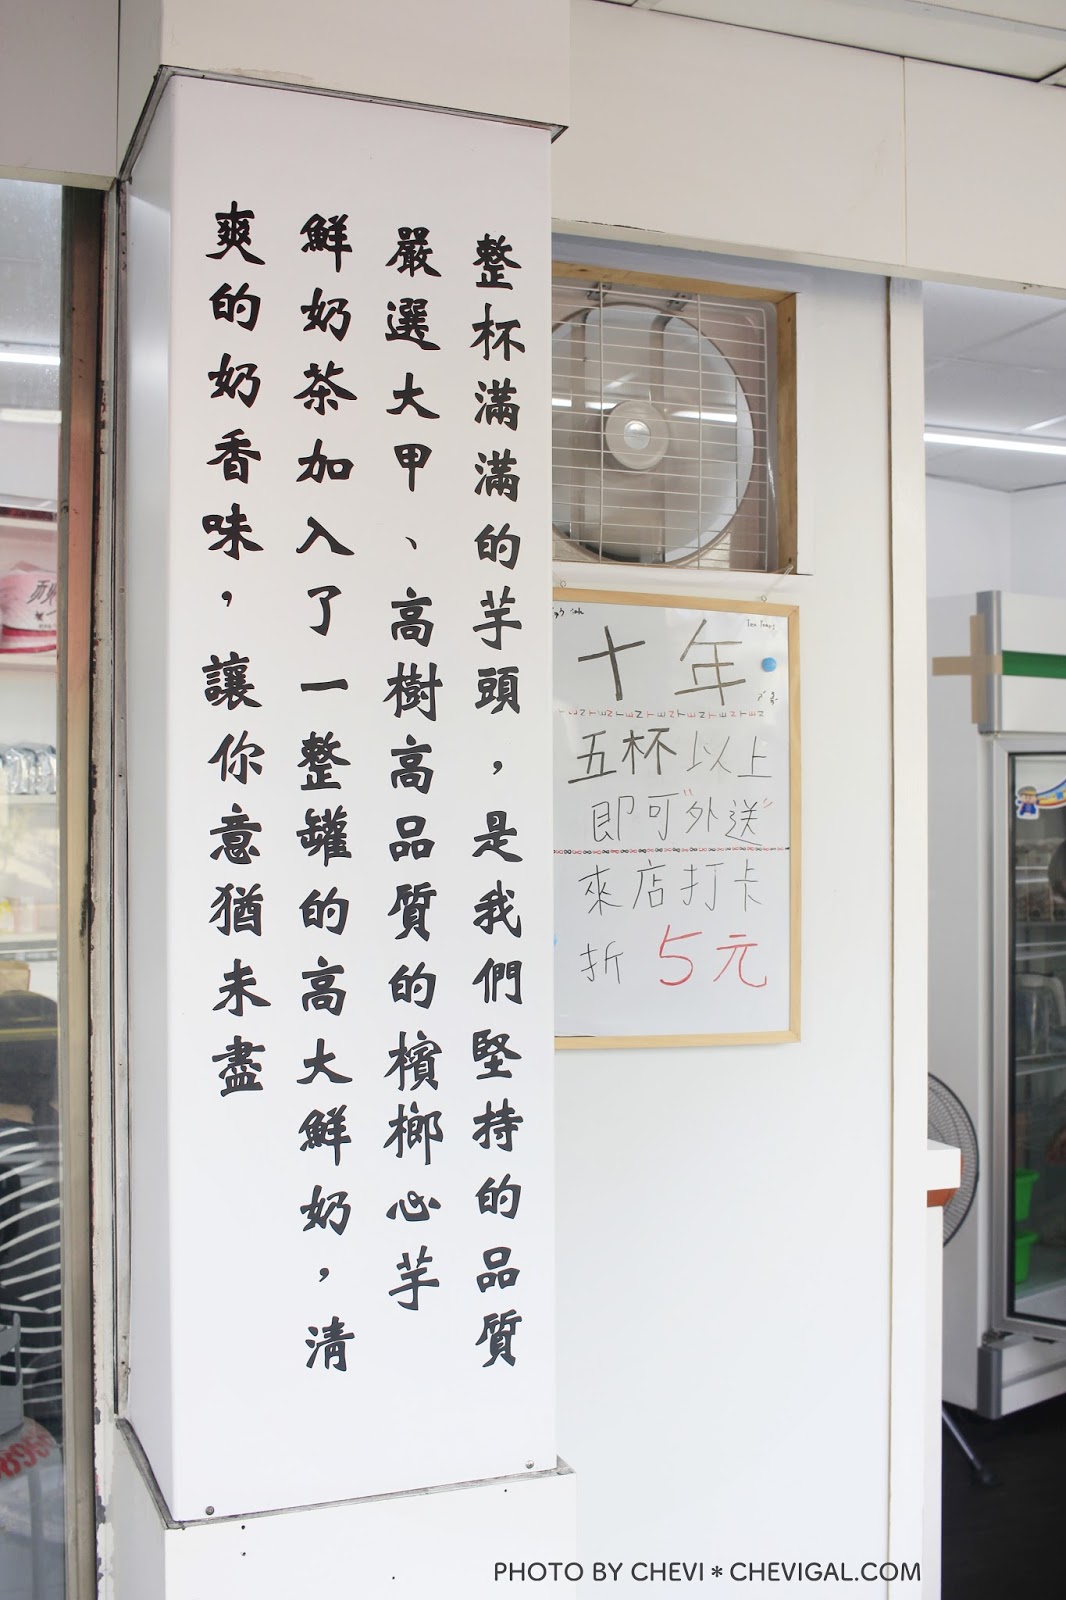 整杯滿滿的芋頭，是我們堅持的品質
嚴選大甲、高樹高品質的檳榔心芋
鮮奶茶加入了一整罐的高大鮮奶，清
爽的奶香味，讓你意猶未盡
十年
五杯以上
即可"外送"
來店打卡
折 5元
PHOTO BY CHEVI＊CHEVIGAL.COM